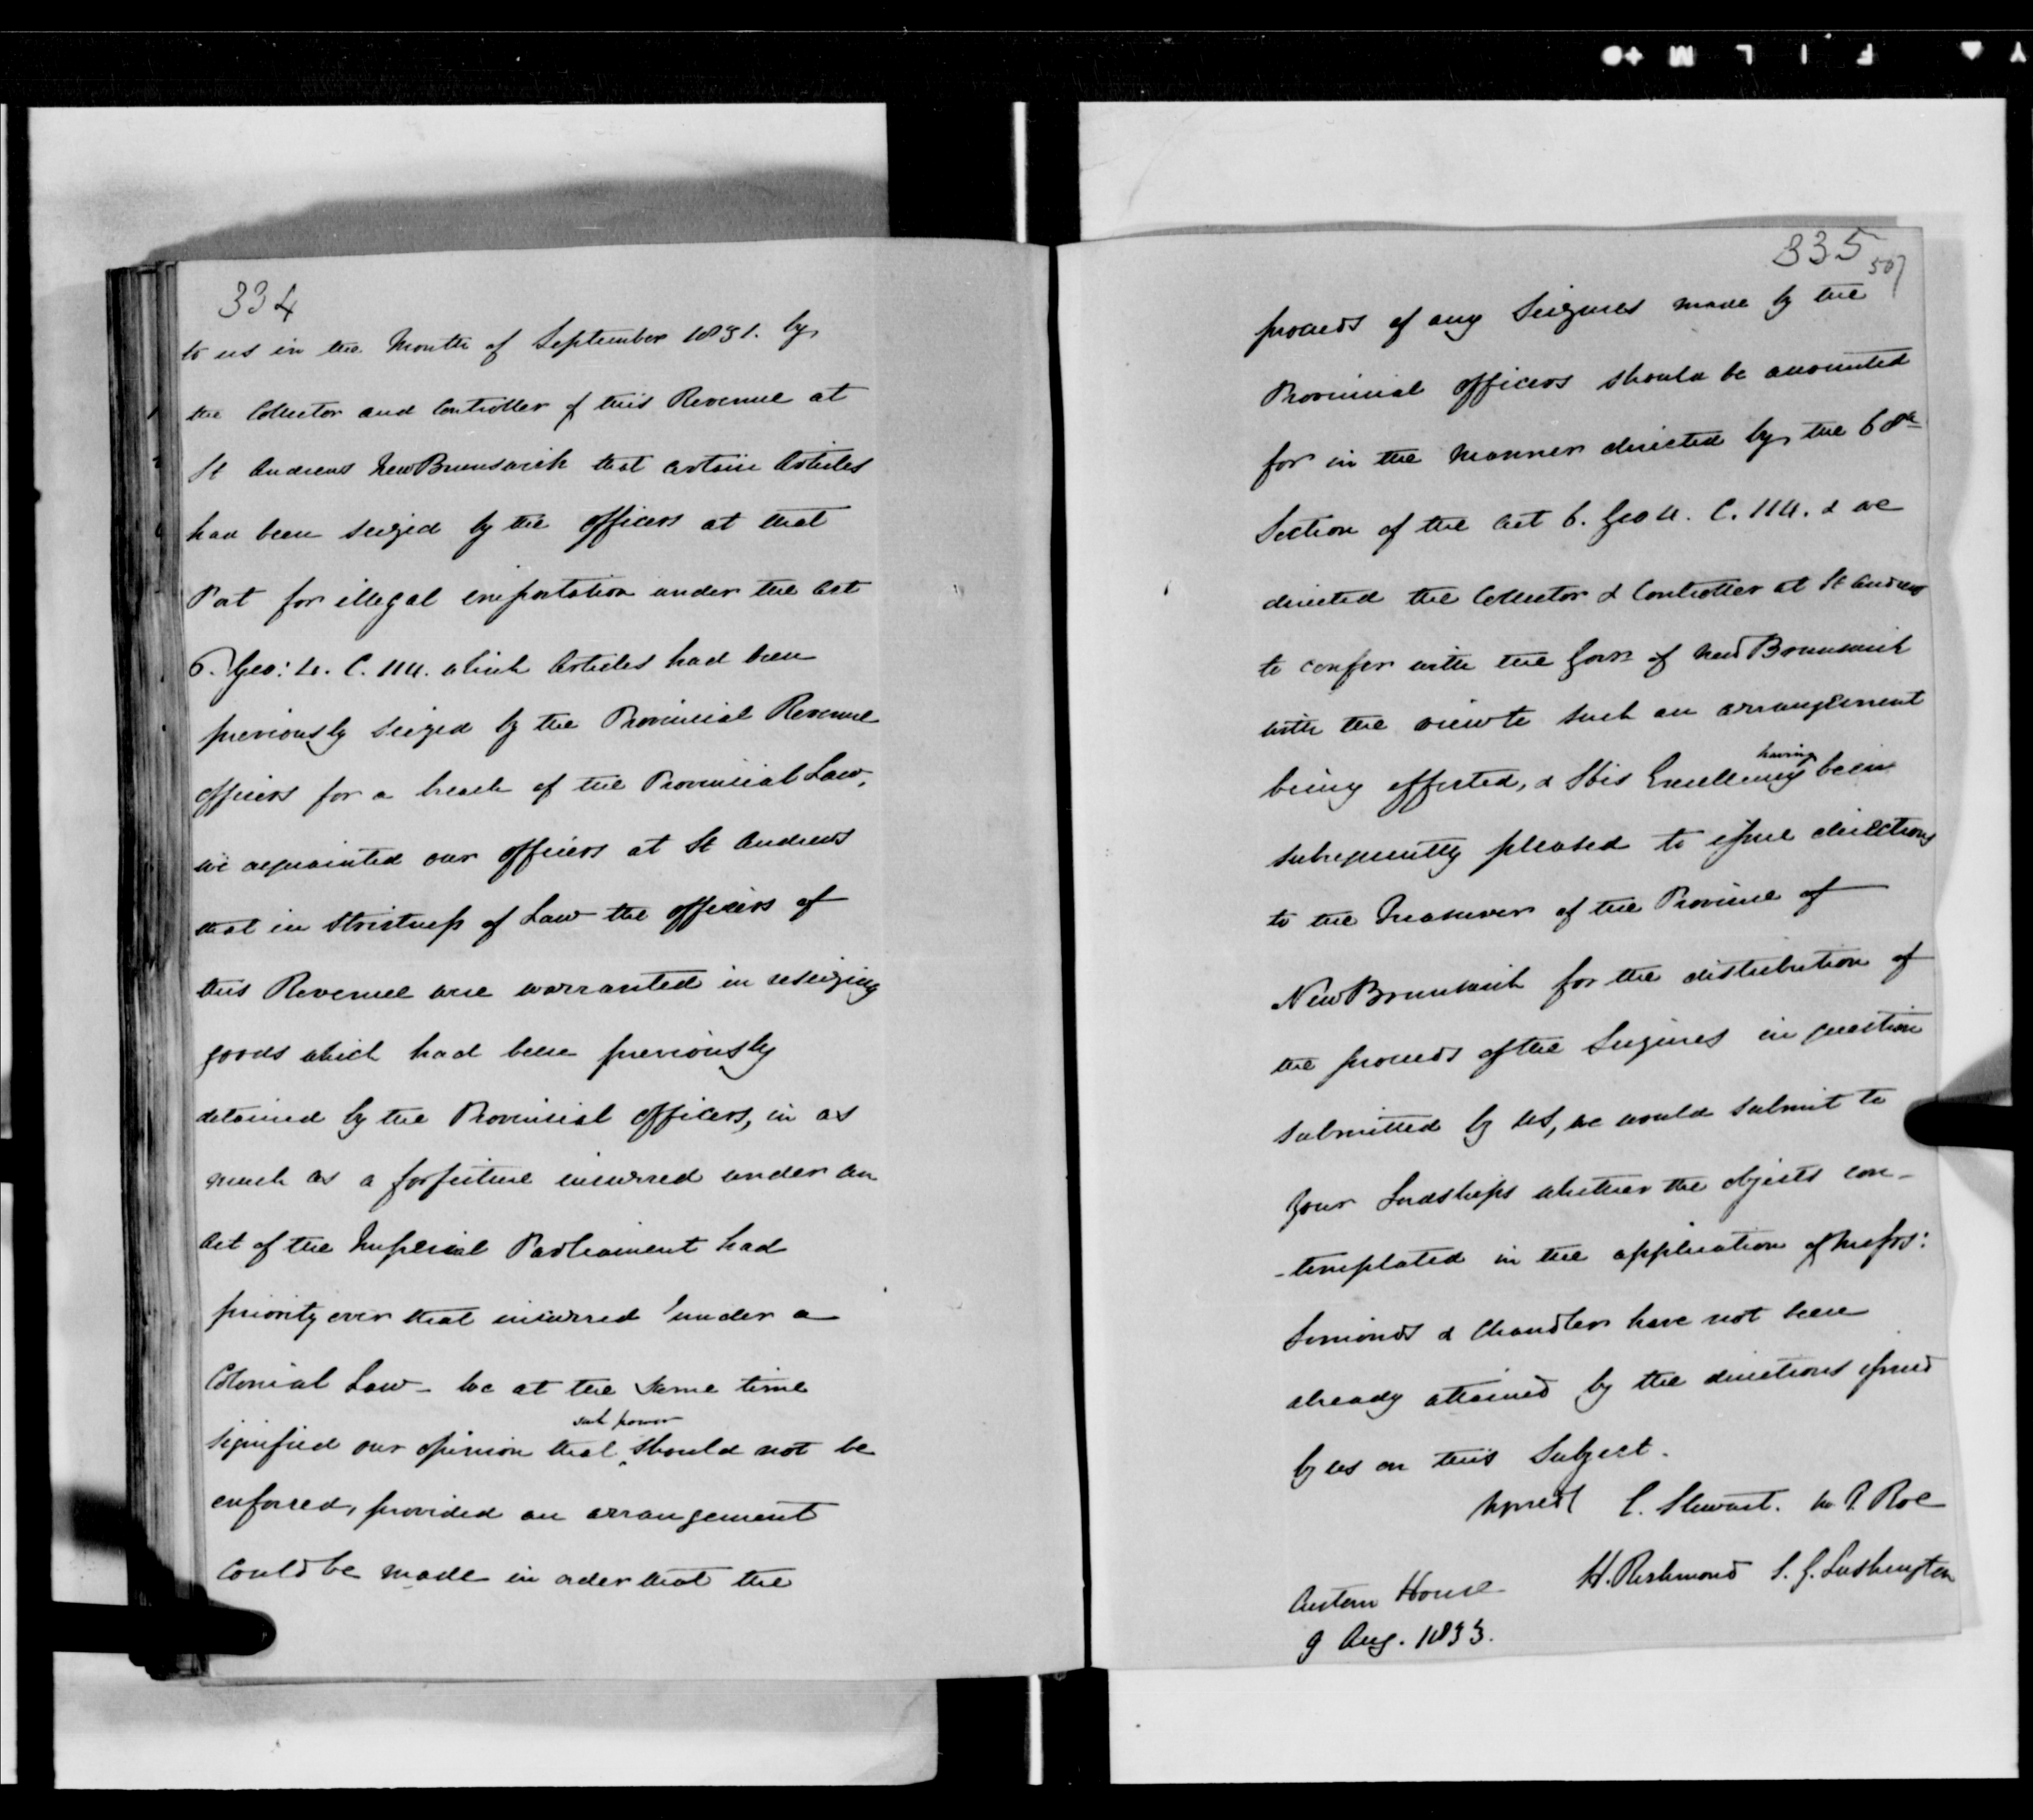 334
to us in the Month of September 1831. by
the Collector and Controller of this Revenue at
St Andrews New Brunswick that certain Articles
had been seized by the Officers at that
Port for illegal importation under the Act
6. Geo: 4. C. 114. which Articles had been
previously seized by the Provincial Revenue
Officers for a breach of the Provincial Law,
we acquainted our Officers at St Andrews
that in strictness of Law the officers of
this Revenue were warranted in reseizing
goods which had been previously
detained by the Provincial Officers, in as
much as a forfeiture incurred under an
Act of the Imperial Parliament had
priority over that incurred under a
Colonial Law - We at the same time
such power
signified our opinion that ‸ should not be
enforced, provided an arrangement
could be made in order that the
335
507
proceeds of any Seizures made by the
Provincial Officers should be accounted
for in the manner directed by the 68th
Section of the Act 6. Geo 4. C. 114. & we
directed the Collector & Controller at St Andrews
to confer with the Govr of New Brunswick
with the view to such an arrangement
having
being effected, & His Excellency been
subsequently pleased to issue directions
to the Treasurer of the Province of
New Brunswick for the distribution of
the proceeds of the Seizures in question
submitted by us, we would submit to
Your Lordships whether the objects con-
-templated in the application of Messrs:
Simonds & Chandler have not been
already attained by the directions issued
by us on this Subject.
Signed C. Stewart. W. P. Roe
H. Richmond S. G. Lushington
Custom House
9 Aug. 1833.
FILM
Y